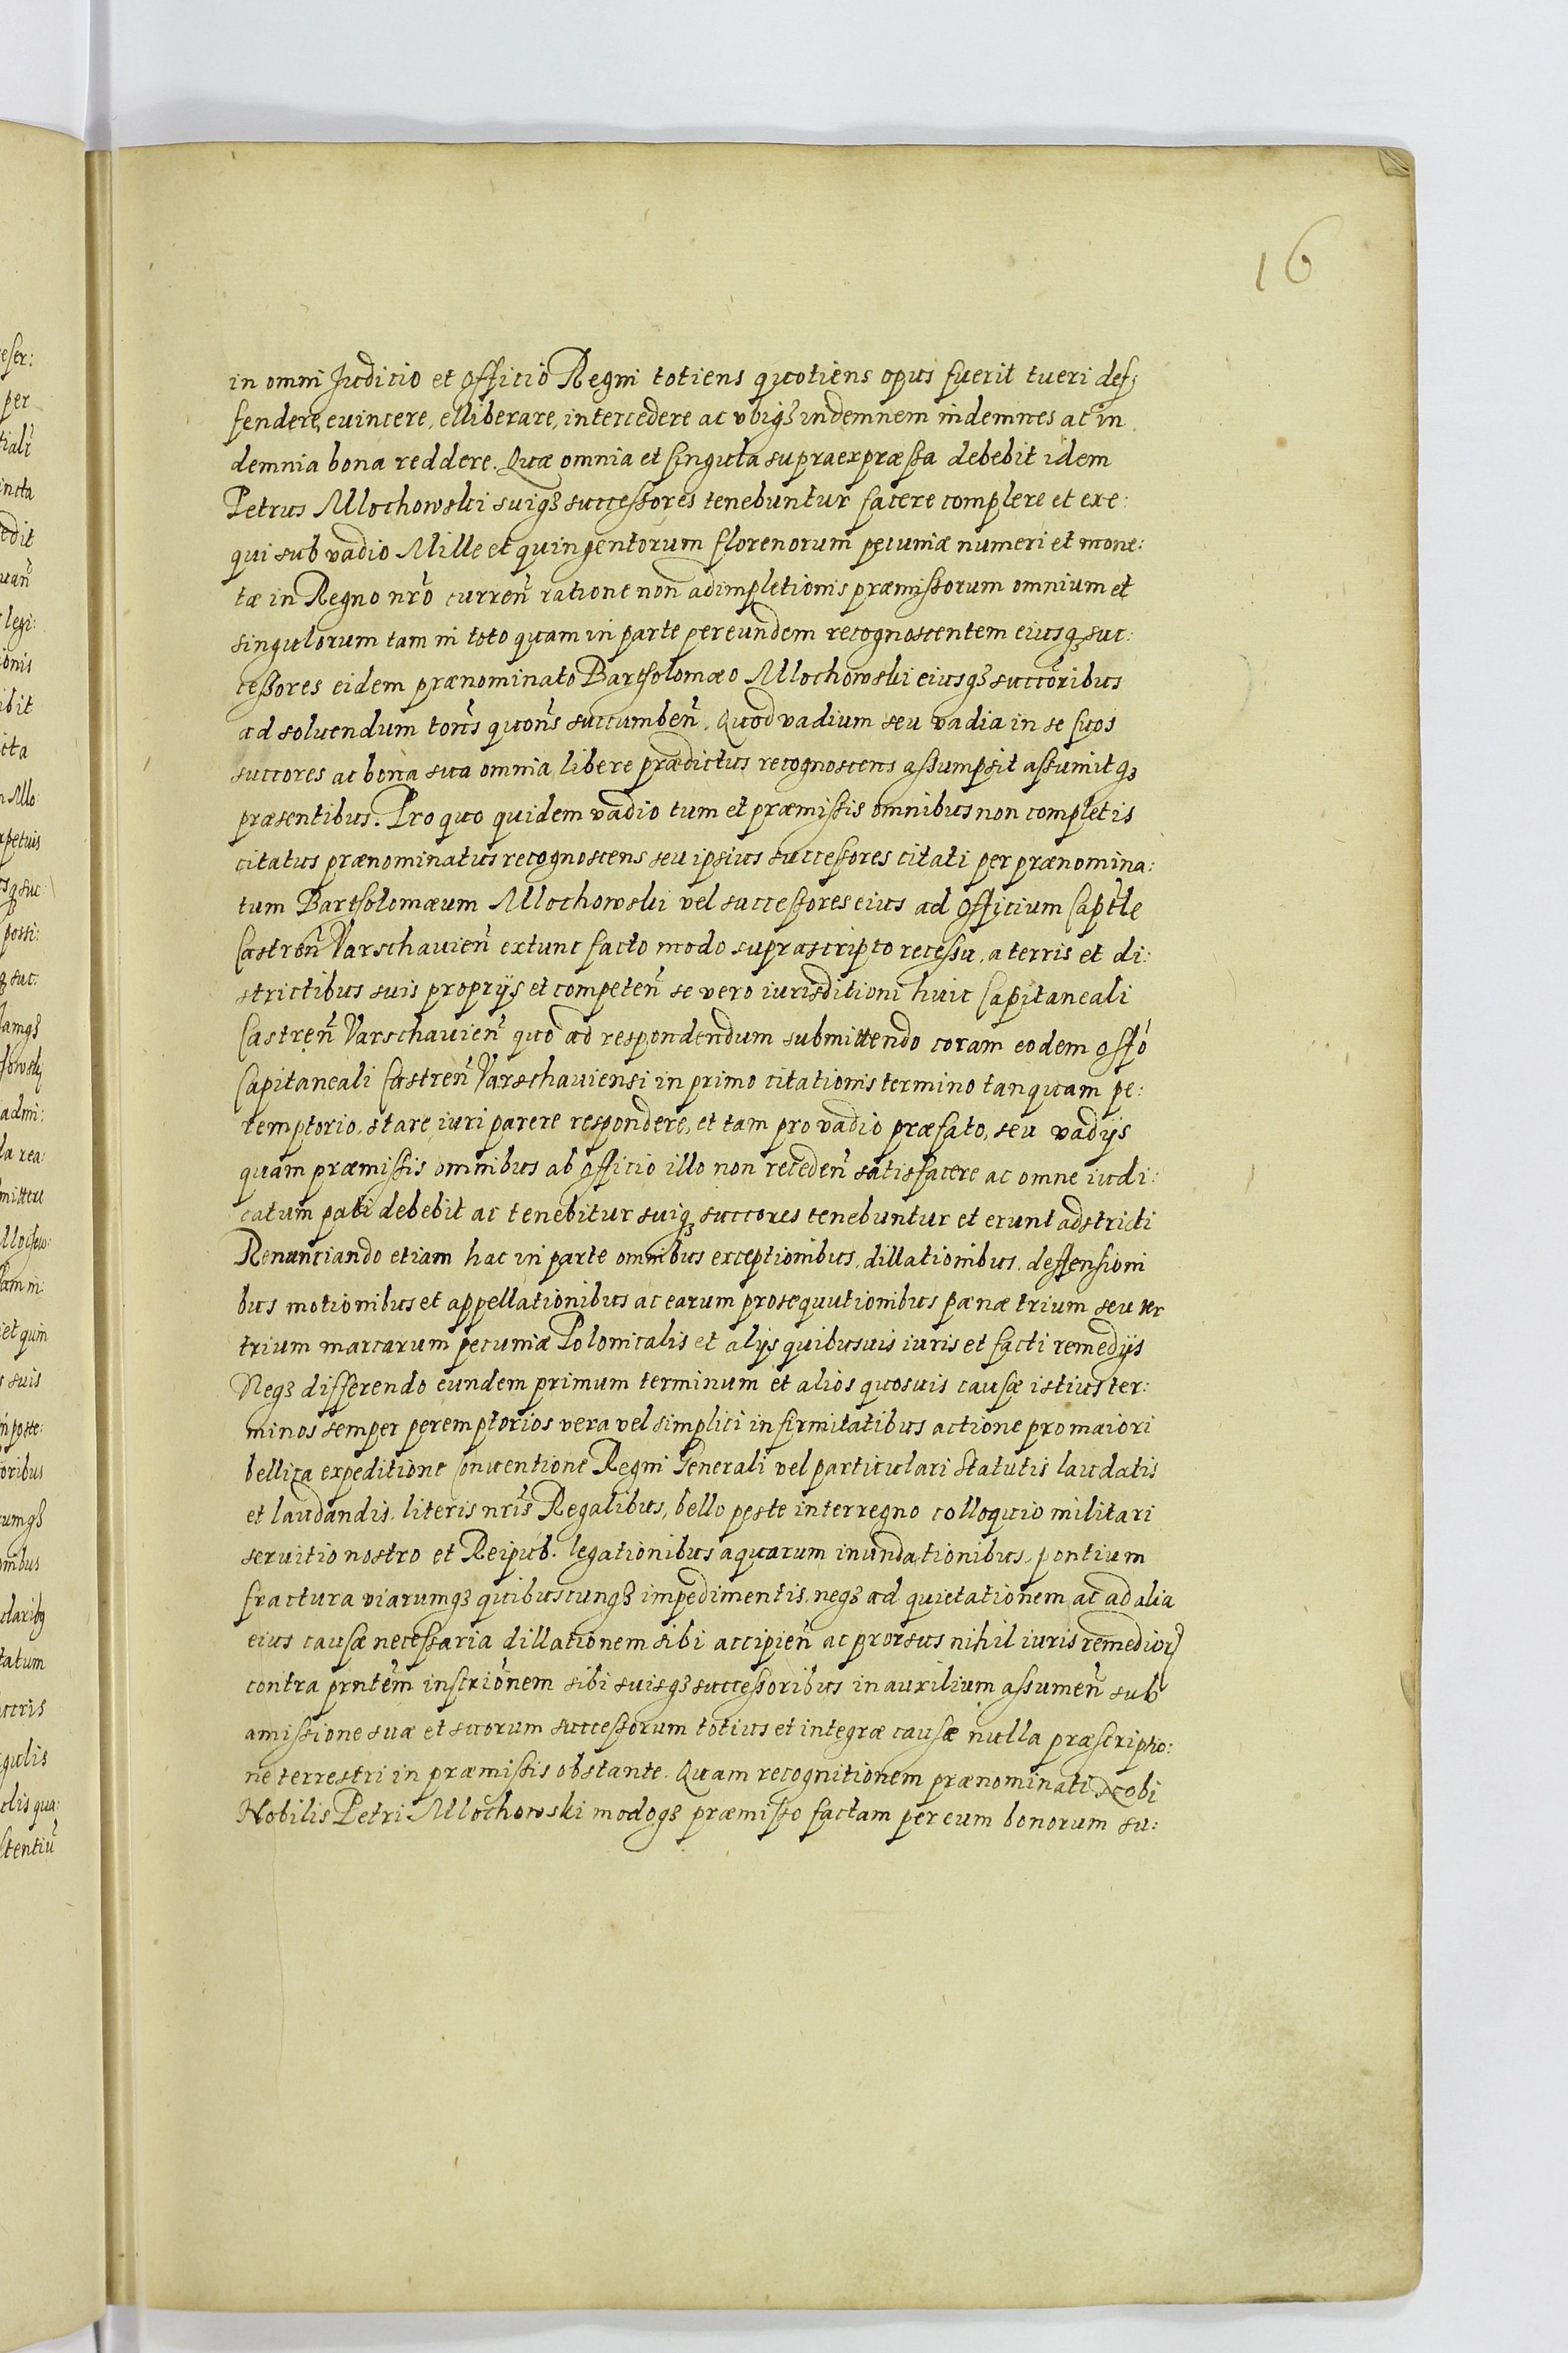 16
in omni Judicio et officio Regni totiens quotiens opus fuerit tueri def;
fendere, euincere, elliberare, intercedere ac vbiqꝫ indemnem indemnes ac in
demnia bona reddere. Quæ omnia et singula supraexpræssa debebit idem
Petrus Mlochowski suiqꝫ successores tenebuntur facere complere et exe:
qui sub vadio Mille et quingentorum florenorum pecuniæ numeri et mone:
tæ in Regno nr̃o curreñ ratione non adimpletionis præmissorum omnium et
singulorum tam in toto quam in parte per eundem recognoscentem eiusqꝫ suc:
cessores eidem prænominato Bartholomæo Mlochowski eiusqꝫ succõribus
ad soluendum toñs quoñs succumbeñ. Quod vadium seu vadia in se suos
succores ac bona sua omnia libere prædictus recognoscens assumpsit assumitqꝫ
præsentibus. Pro quo quidem vadio tum et præmissis omnibus non completis
citatus prænominatus recognoscens seu ipsius successores citati per prænomina:
tum Bartholomæum Mlochowski vel successores eius ad Officium Cap̃tle
Castreñ Varschauieñ extunc facto modo suprascripto recessu, a terris et di:
strictibus suis proprijs et competeñ se vero iurisditioni huic Capitaneali
Castreñ Varschauieñ quo ad respondendum submittendo coram eodem offó
Capitaneali Castreñ Varschauiensi in primo citationis termino tanquam pe:
remptorio, stare iuri parere respondere, et tam pro vadio præfato, seu vadijs
quam præmissis omnibus ab officio illo non recedeñ satisfacere ac omne iudi:
catum pati debebit ac tenebitur suiqꝫ succores tenebuntur et erunt adstricti
Renunciando etiam hac in parte omnibus exceptionibus, dillationibus, deffensioni
bus motionibus et appellationibus ac earum prosequutionibus pænæ trium seu ter
trium marcarum pecuniæ Polonicalis et alijs quibusuis iuris et facti remedijs
Neqꝫ differendo eundem primum terminum et alios quosuis causæ istius ter:
minos semper peremptorios vera vel simplici infirmitatibus actione pro maiori
bellica expeditione Conuentione Regni Generali vel particulari Statutis laudatis
et laudandis, literis nr̃is Regalibus, bello peste interregno colloquio militari
seruitio nostro et Reipub. legationibus aquarum inundationibus, pontium
fractura viarumqꝫ quibuscunqꝫ impedimentis, neqꝫ ad quietationem ac ad alia
eius causæ necessaria dillationem sibi accipieñ ac prorsus nihil iuris remedioꝝ
contra prntẽm inscriõnem sibi suisqꝫ successoribus in auxilium assumeñ sub
amissione suæ et suorum successorum totius et integræ causæ nulla præscriptio:
ne terrestri in præmissis obstante. Quam recognitionem prænominati
Nobilis Petri Mlochowski modoqꝫ præmisso factam per eum bonorum su: